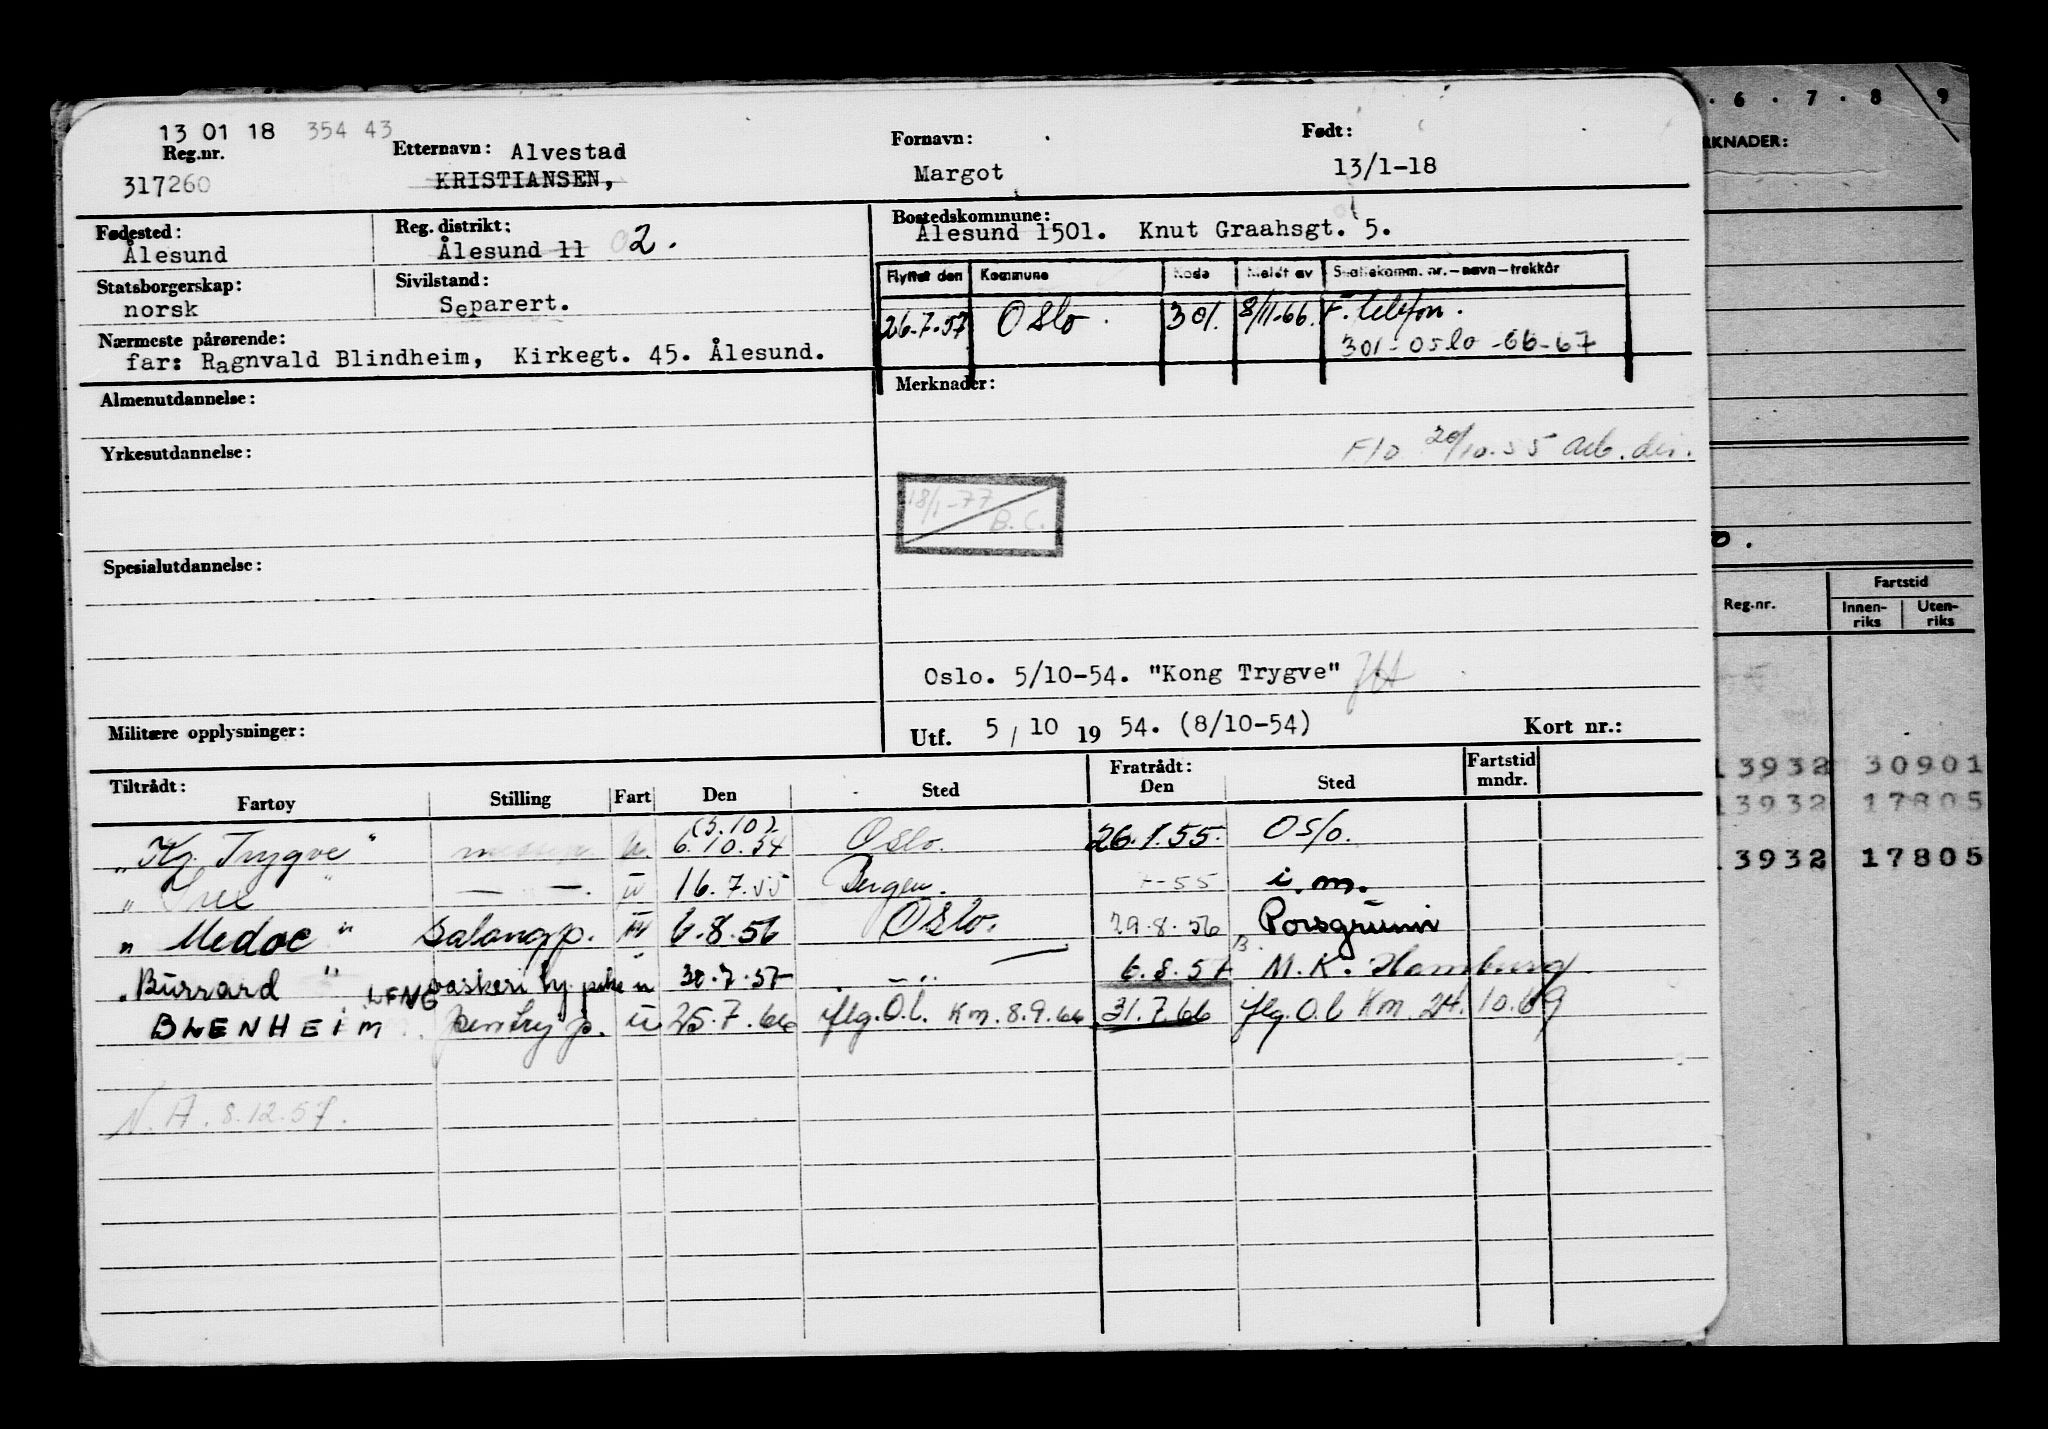 13 01 18 354 43
Reg.nr.
317260
Etternavn: Alvestad
KRISTIANSEN,
Fornavn:
Margot
Født:
13/1-18
Fødested:
Ålesund
Reg. distrikt:
Ålesund 11 02.
Bostedskommune:
Ålesund 1501. Knut Graahsgt. 5.
Statsborgerskap:
norsk
Sivilstand:
Separert.
Flyttet den Kommune Kode Meldt av Skattekomm. nr.-navn-trekkår
26.7.57 Oslo. 301. 8/11-66. F. telefon.
301-Oslo-66-67
Nærmeste pårørende:
far: Ragnvald Blindheim, Kirkegt. 45. Ålesund.
Almenutdannelse:
Merknader:
20/10.55 arb.dir.
Yrkesutdannelse:
18/1-77
B.C.
Spesialutdannelse:
Oslo. 5/10-54. "Kong Trygve"
Militære opplysninger:
Utf. 5/10 19 54. (8/10-54)
Kort nr.:
Tiltrådt:
Fartøy Stilling Fart Den Sted
Fratrådt:
Den Sted
Fartstid
mndr.
"Kg. Trygve" u. (5.10) 6.10.54 Oslo. 26.1.55. Oslo.
" " — — . u 16.7.55 Bergen. -55 i.m.
" Medoc " Salongp. u 6.8.56 Oslo. 29.8.56 Porsgrunn
"Burrard " vaskeri u 30.7.57 — " — 6.8.57 M.K. Hamburg
BLENHEIM LFNG pantry p. u 25.7.66 iflg. O.l. Km. 8.9.66 31.7.66 iflg. O.l Km. 24.10.69
N.A. 8.12.57.
. 6 . 7 . 8 9
RKNADER:
o.
Reg.nr.
Fartstid
Innen-
riks
Uten-
riks
13932 30901
13932 17805
13932 17805